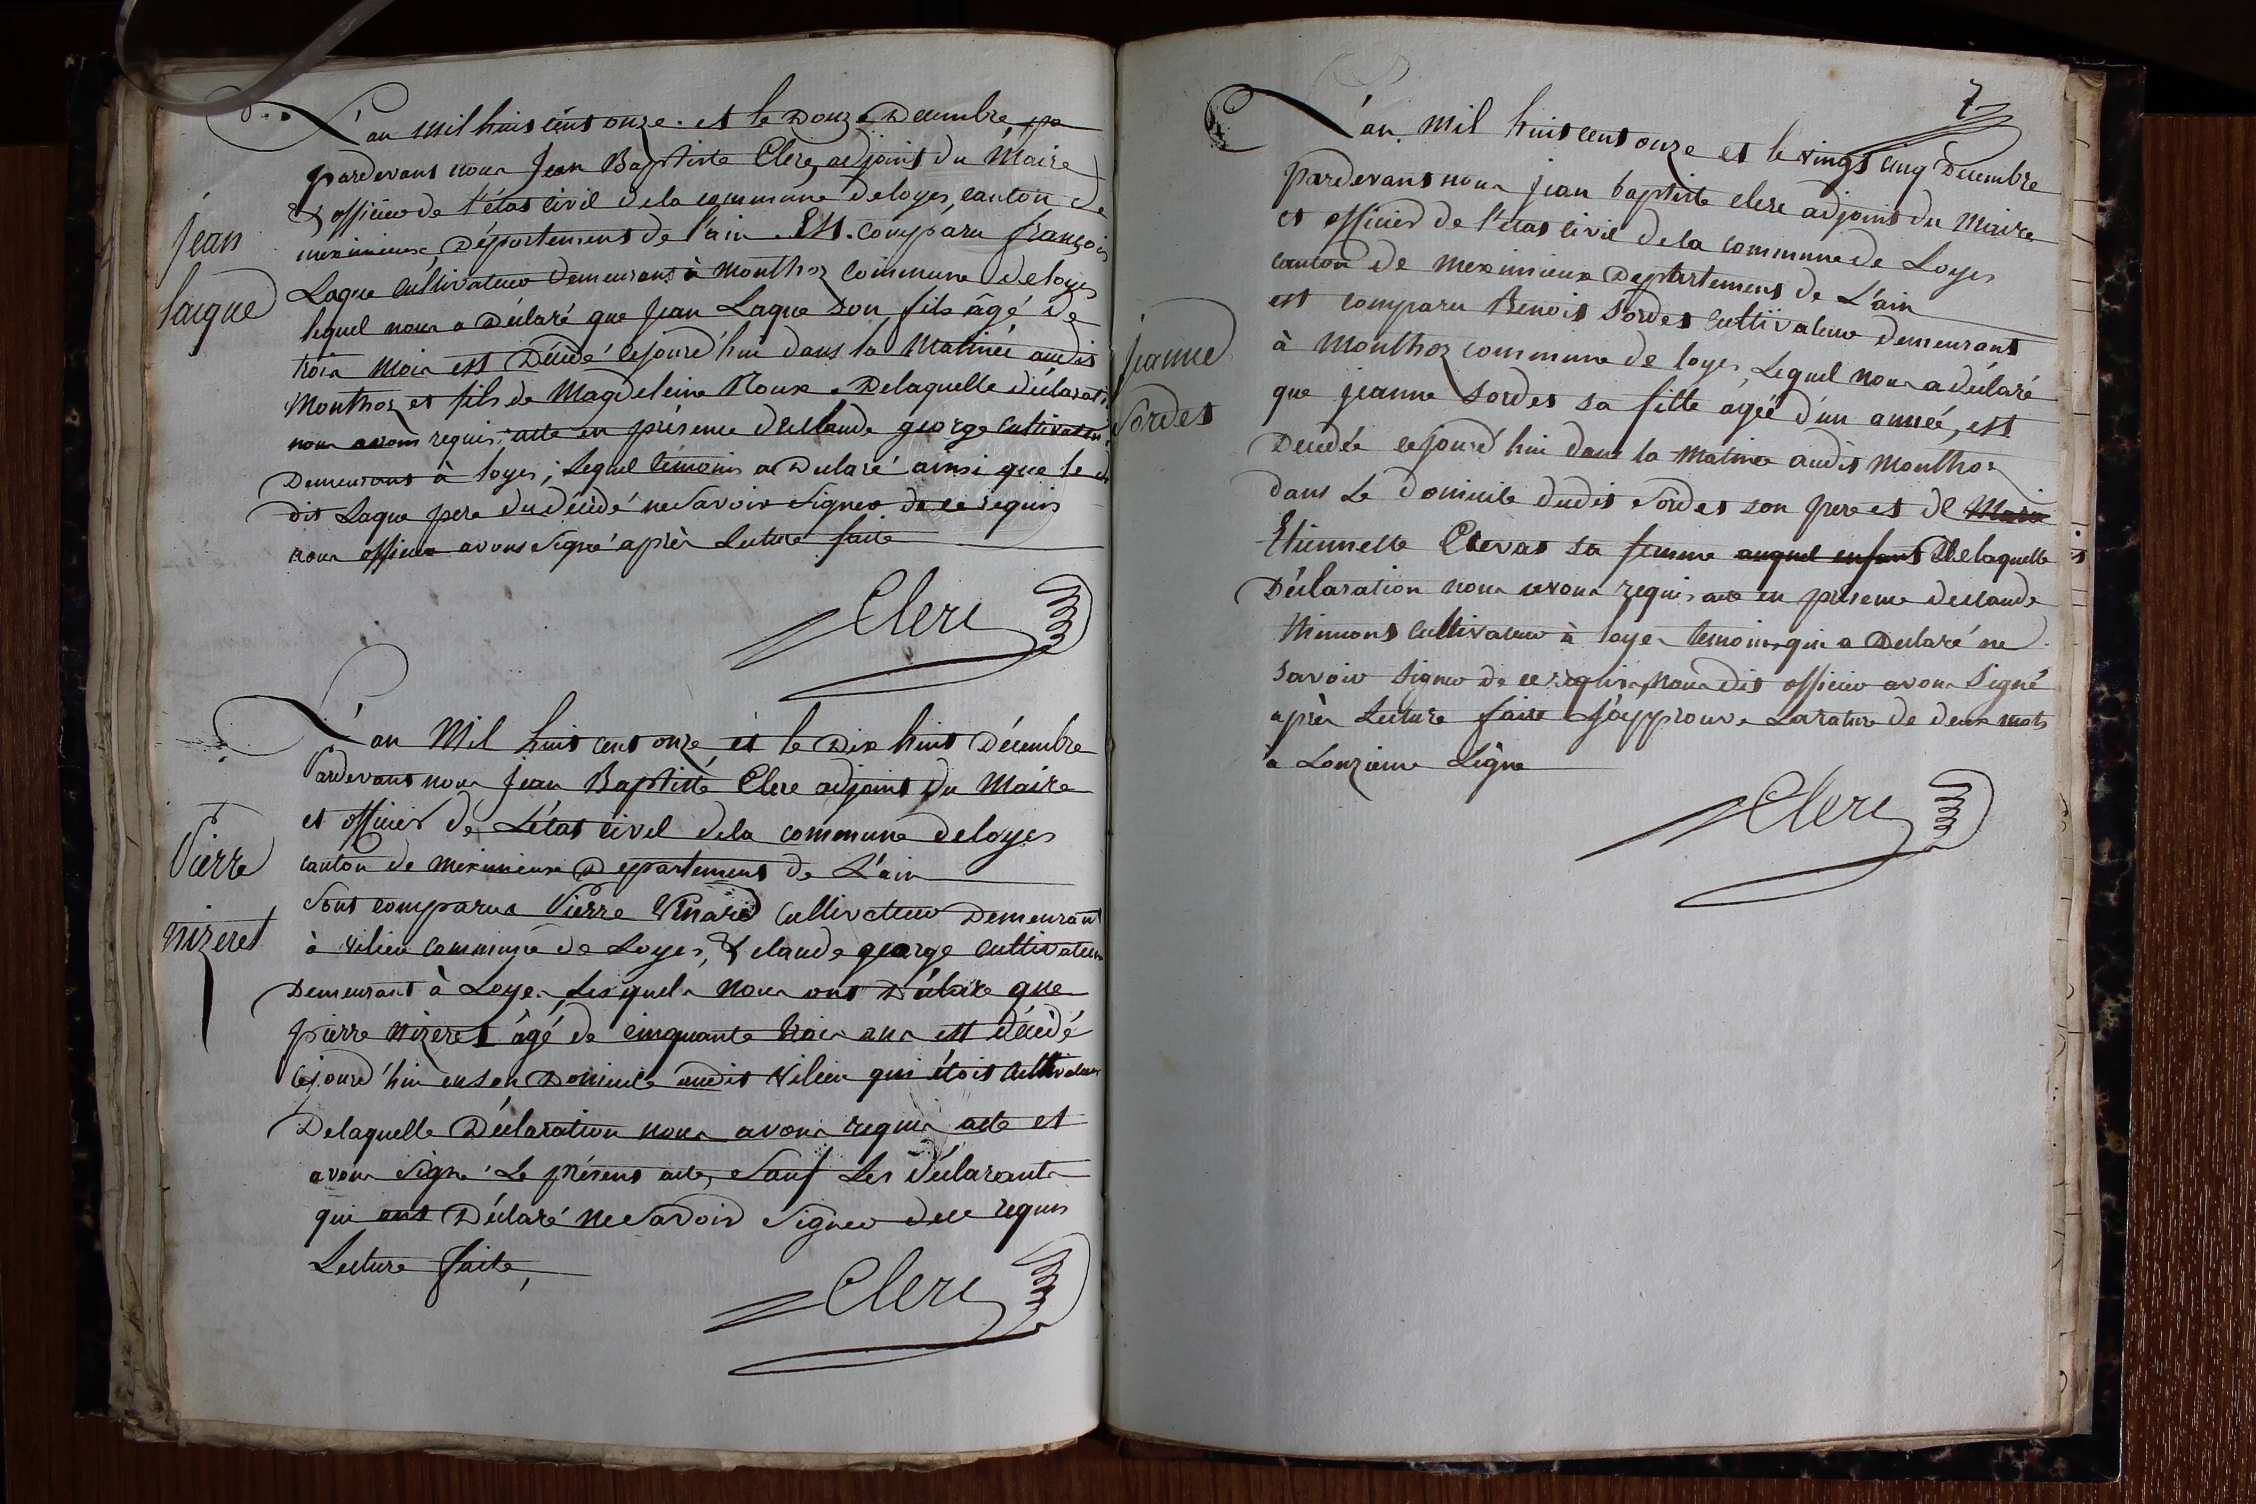 L'an mil huit cent onze et le Douze Decembre pa
pardevant nous Jean Baptiste Clerc, adjoint du Maire
& officier de l'état civil de la commune de loyes, canton de
meximieux, Département de l'ain. Est comparu françois
Laque cultivateur demeurant à monthoz commune de loyes
lequel nous a Déclaré que Jean Laque son fils âgé de
trois mois est Décédé cejourd'hui dans la Matinée audit
Monthoz et fils de Magdeleine Roux. Delaquelle déclarat
nous avons requis acte en présence de Claude george Cultivateur
Demeurant à loyes, Lequel témoin a Declaré ainsi que le
dit Laque pere du décédé ne Savoir Signer de ce requis
nous officier avons Signé après Lecture faite
jean
laique
Clerc
L'an Mil huit cent onze, et le Dix huit Décembre
Pardevant nous Jean Baptiste Clerc adjoint Du Maire
et officier de L'état civil dela commune deloyes
canton de meximieux Departement de L'ain
Sont comparus Pierre Vinard Cultivateur Demeurant
à vilieu commune de Loyes, & claude george Cultivateur
Demeurant à Loyes, Lesquels nous ont Déclaré que
pierre nizeret âgé de cinquante trois ans est décédé
cejourd'hui en son Domicile audit vilieu qui étoit Cultivateur
Delaquelle Déclaration nous avons requis acte et
avons Signé Le présent acte, Sauf Les Déclarants
qui ont Déclaré ne Savoir Signer de ce requis
Lecture faite,
Pierre
nizeret
Clerc
7
L'an mil huit cent onze et le vingt cinq Decembre
Pardevant nous jean baptiste clerc adjoint du Maire
et officier de l'état civil dela commune de Loyes
canton de meximieux Departement de L'ain
est comparu Benoit Sordes Cultivateur demeurant
à Monthoz commune de loyes, Lequel nous a déclaré
que jeanne Sordes sa fille agée d'un année, est
Decedée cejourd'hui dans la Matinée audit Monthoz
dans Le domicile dudit Sordes son pere et de Marie
Etiennette sa femme auquel enfant Delaquelle
Déclaration nous avons requis acte en présence de claude
cultivateur à loyes temoin qui a Declaré ne
savoir signer de ce requis, nous dit officier avons Signé
après Lecture faite J'approuve La rature de deux mots
à Lonzieme Ligne
jeanne
Sordes
Clerc